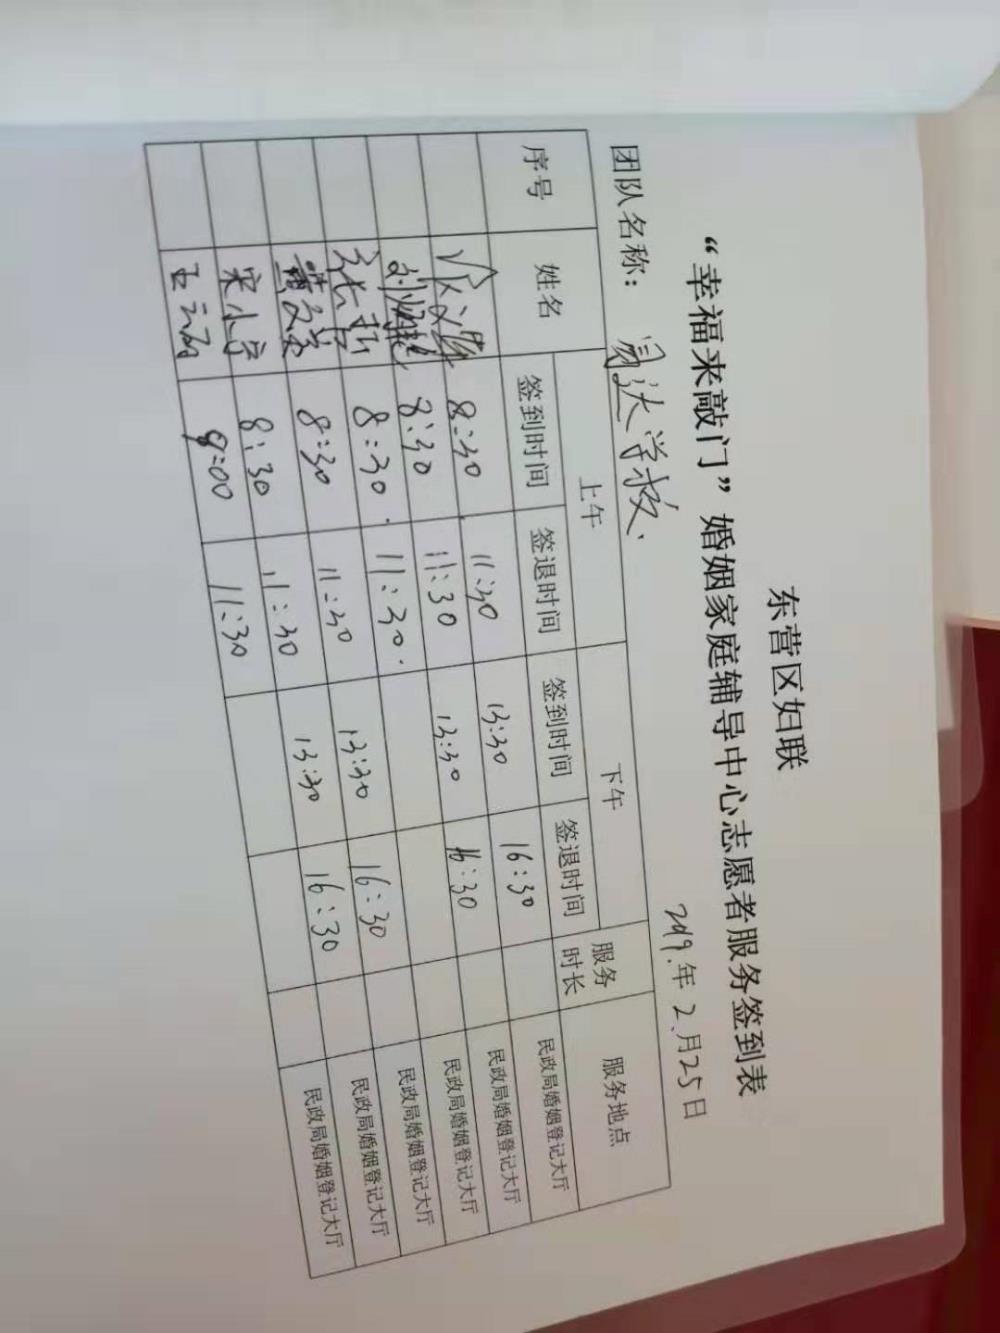 东营区妇联
“幸福来敲门”婚姻家庭辅导中心志愿者服务签到表
团队名称： 学校 2019.年2.月25日
序号 姓名 上午 下午 服务时长 服务地点
签到时间 签退时间 签到时间 签退时间
8:30 11:30 13:30 16:30 民政局婚姻登记大厅
8:30 11:30 13:30 16:30 民政局婚姻登记大厅
张哲 8:30. 11:30. 民政局婚姻登记大厅
8:30 11:30 13:30 16:30 民政局婚姻登记大厅
宋小宁 8:30 11:30 13:30 16:30 民政局婚姻登记大厅
9:00 11:30